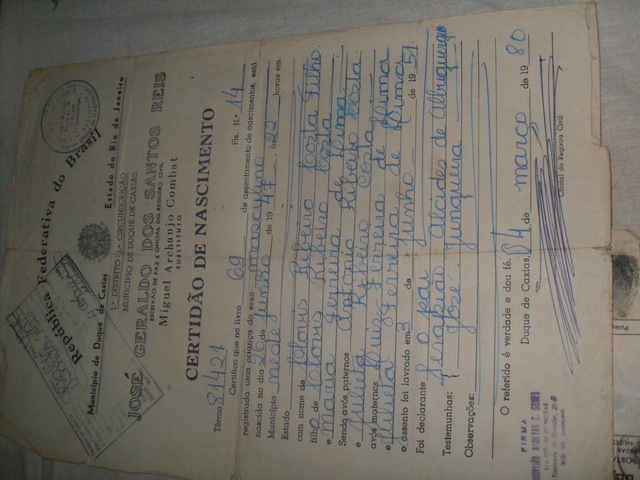 República Federativa do Brasil
Estado do Rio de Janeiro
Município de Duque de Caxias
1.º DISTRITO 1.ª CIRCUNSCRIÇÃO
MUNICÍPIO DE DUQUE DE CAXIAS
JOSÉ GERALDO DOS SANTOS REIS
ESCRIVÃO DE PAZ E OFICIAL DO REGISTRO CIVIL
Miguel Archanjo Combat
SUBSTITUTO
CERTIDÃO DE NASCIMENTO
Têrmo 81421
Certifico que no livro 69 Fls. N.º 14
de assentamento de nascimentos, está
registrada uma criança do sexo masculino
nascida no dia 20 de junho de 1947 às 22 horas em
Município
Estado
com nome de Clovis Ribeiro Costa Filho
filho de Clovis Ribeiro Costa
e Maria Ferreira de Lima
Sendo avós paternos Antonio Ribeiro Costa
e Julieta Ribeiro Costa
avós maternos Luiz Ferreira de Lima
e Julieta Ferreira de Lima
o assento foi lavrado em 3 de junho de 1951
Foi declarante o pai
Testemunhas: Alcides de Albuquerque
José Junqueira
Observações:
O referido é verdade e dou fé.
Duque de Caxias, 14 de março de 1980
Oficial do Registro Civil
FIRMA